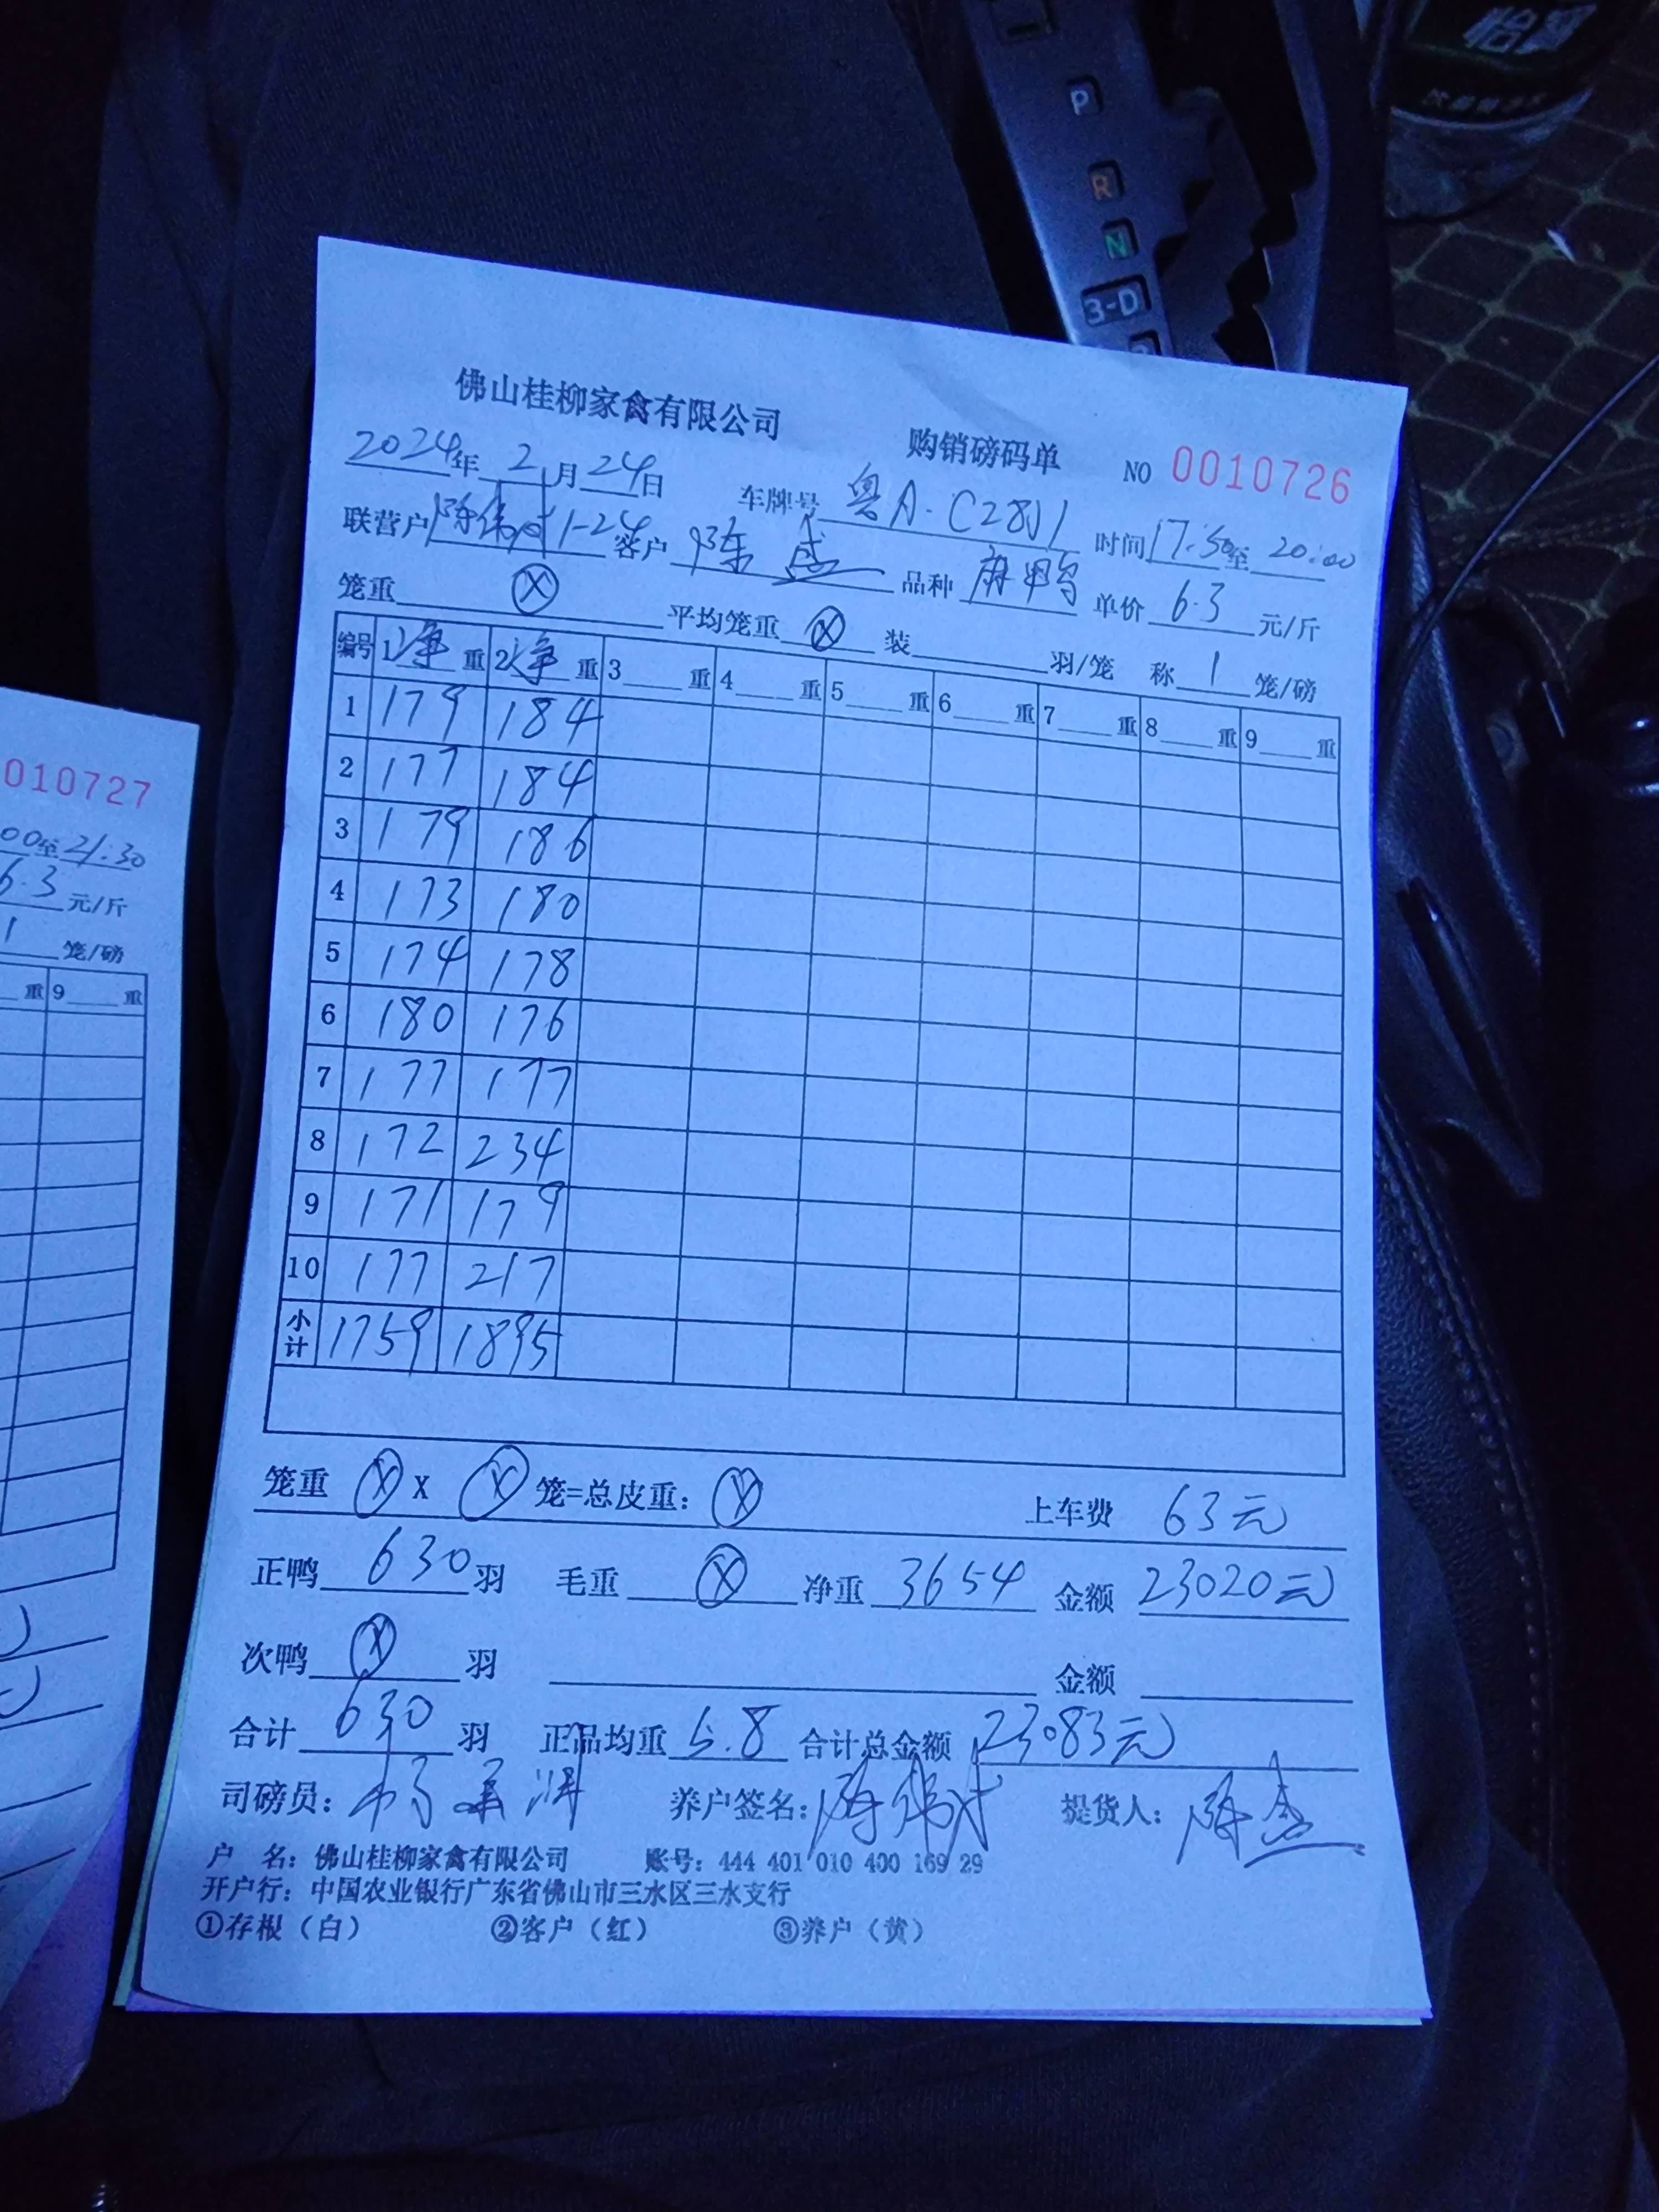 P
R
N
3-D
怡寶
佛山桂柳家禽有限公司 购销磅码单 NO 0010726
2024年 2月24日 车牌号 粤A·C28J1 时间17:50至20:00
联营户 陈伟 1-24 客户 陈盛 品种 麻鸭 单价 6.3 元/斤
笼重 ⓧ 平均笼重 ⓧ 装 羽/笼 称 1 笼/磅
编号 1净重 2净重 3 重 4 重 5 重 6 重 7 重 8 重 9 重
1 179 184
2 177 184
3 179 186
4 173 180
5 174 178
6 180 176
7 177 177
8 172 234
9 171 179
10 177 217
小计 1759 1895
笼重 ⓧ x ⓧ 笼=总皮重: ⓧ 上车费 63元
正鸭 630 羽 毛重 ⓧ 净重 3654 金额 23020元
次鸭 ⓧ 羽 金额
合计 630 羽 正品均重 5.8 合计总金额 23083元
司磅员: 养户签名: 陈伟 提货人: 陈盛
户 名: 佛山桂柳家禽有限公司 账号: 444 401 010 400 169 29
开户行: 中国农业银行广东省佛山市三水区三水支行
①存根（白） ②客户（红） ③养户（黄）
010727
00至21:30
6.3 元/斤
1 笼/磅
重 9 重